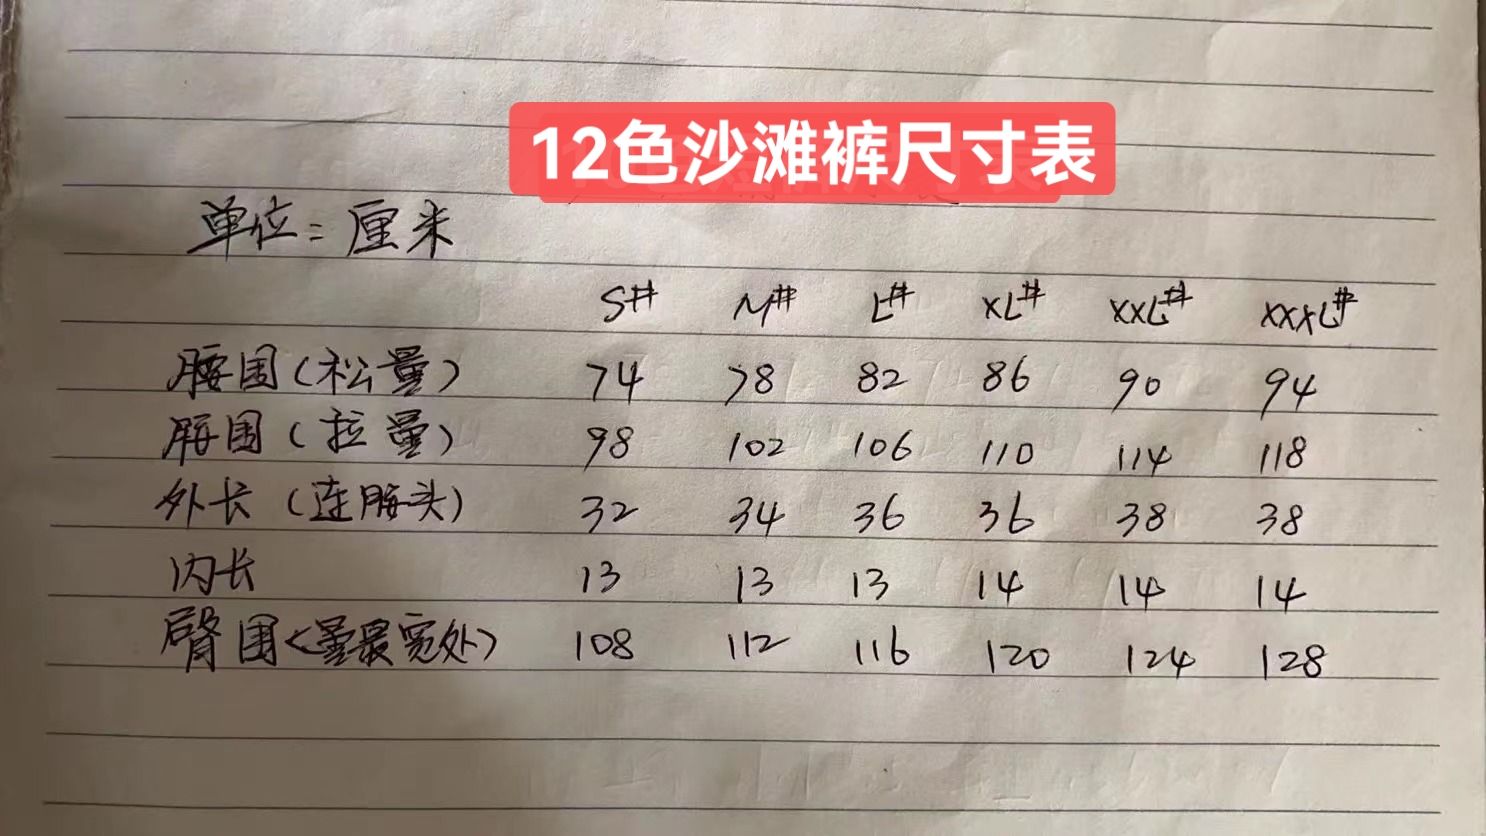 12色沙滩裤尺寸表
单位：厘米
S# M# L# XL# XXL# XXXL#
腰围（松量） 74 78 82 86 90 94
腰围（拉量） 98 102 106 110 114 118
外长（连腰头） 32 34 36 36 38 38
内长 13 13 13 14 14 14
臀围<量最宽处> 108 112 116 120 124 128